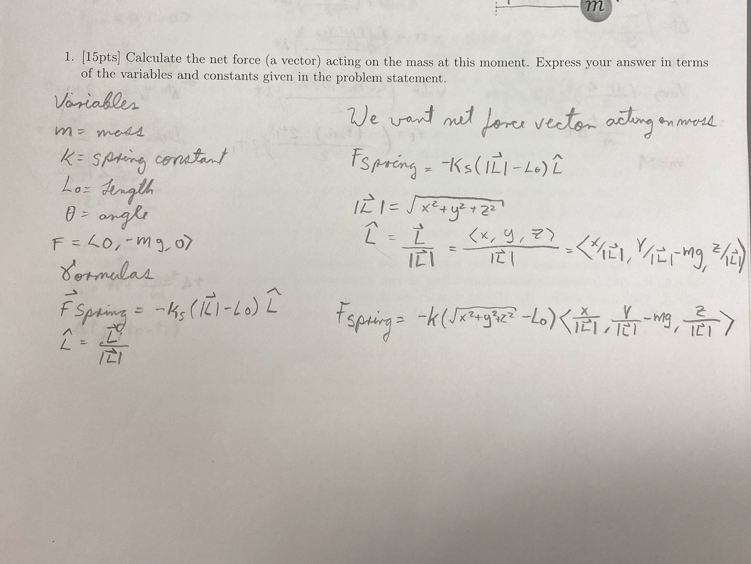 m
1. [15pts] Calculate the net force (a vector) acting on the mass at this moment. Express your answer in terms
of the variables and constants given in the problem statement.
Variables
m = mass
K = spring constant
L₀ = length
θ = angle
F = <0, -mg, 0>
Formulas
F⃗spring = -Ks(|L⃗|-L₀) L̂
L̂ = L⃗/|L⃗|
We want net force vector acting on mass
Fspring = -Ks(|L⃗|-L₀) L̂
|L⃗| = √(x²+y²+z²)
L̂ = L⃗/|L⃗| = <x, y, z>/|L⃗| = <x/|L⃗|, y/|L⃗|-mg, z/|L⃗|>
Fspring = -k(√(x²+y²+z²) -L₀)<x/|L⃗|, y/|L⃗|-mg, z/|L⃗|>